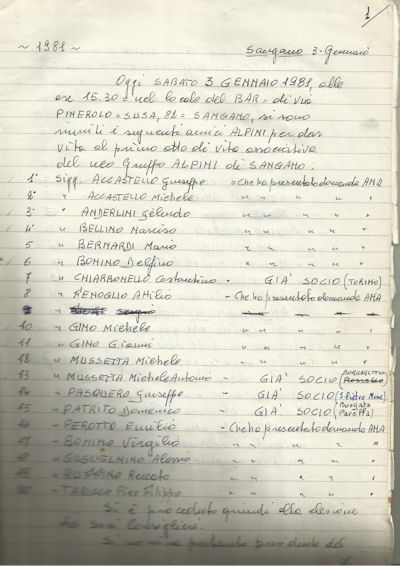 1/
~ 1981 ~ Sangano 3-Gennaio
Oggi SABATO 3 GENNAIO 1981, alle
ore 15.30 = nel locale del BAR = di via
PINEROLO = SUSA, 82 = SANGANO, si sono
riuniti i seguenti amici ALPINI per dar
vita al primo atto di vita associativa
del neo Gruppo ALPINI di SANGANO:
1° Sigg. ACCASTELLO Giuseppe = Che ha presentato domanda ANA
2° " ACCASTELLO Michele " " " " "
3° " ANDERLINI Gelindo " " " " "
4° " BELLINO Narciso " " " " "
5 " BERNARDI Mario " " " " "
6 " BONINO Delfino " " " " "
7 " CHIARBONELLO Costantino - GIA' SOCIO (TORINO)
8 " FENOGLIO Attilio - Che ha presentato domanda ANA
9 "
10 " GINO Michele " " " " "
11 " GINO Gianni " " " " "
12 " MUSSETTA Michele " " " " "
13 " MUSSETTA Michele Antonio - GIA' SOCIO
14 " PASQUERO Giuseppe - GIA' SOCIO
15 " PATRITO Domenico - GIA' SOCIO (Borgata
16 " PEROTTO Emilio - Che ha presentato domanda ANA
17 " BONINO Virgilio " " " "
18 " GUGLIELMINO Alessio " " " "
19 " Renato " " " "
20 " Pier Filippo " " " "
Si è proceduto quindi alla elezione
dei Consiglieri.
presidente del